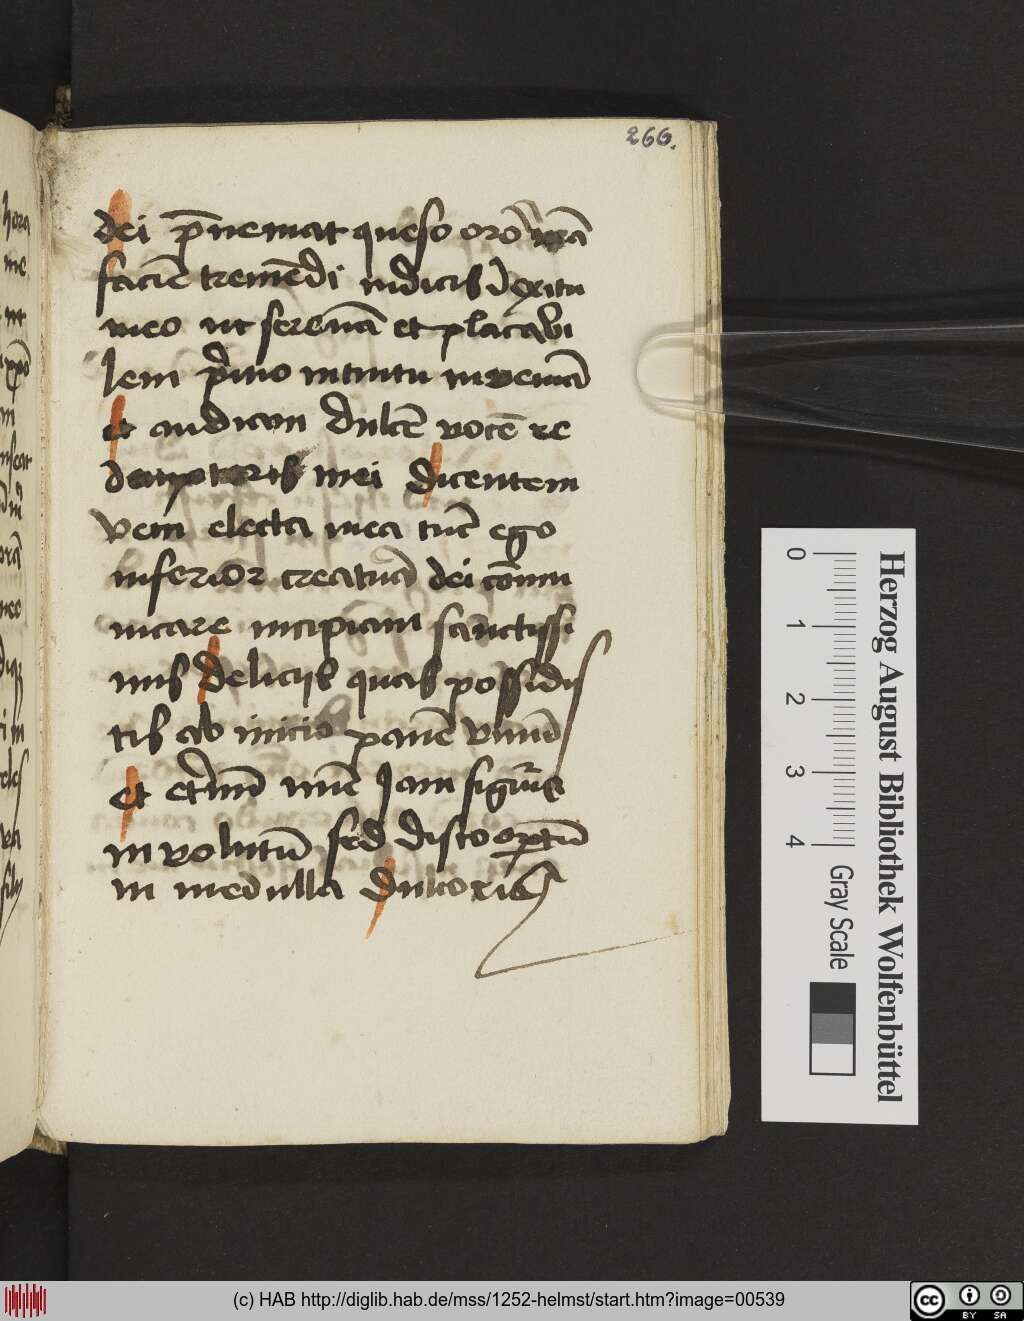 266.
dei p̄ueniat queso oro v̄rā
faciē tremēdi iudicis ī exitu
meo ut serenā et placabi
lem p̄mo intuitu inveniā
et audiam dulcē vocē re
demptoris mei dicentem
veni electa mea tūc ego
inferior creatura dei cōmu
nicare incipiam sanctissi
mis deliciis quas possidē
tis ab inicio panē vivū
et et̄nū nūc Jam figuris
involutū sed disco optū
in medulla dulcoris
hora
me
Herzog August Bibliothek Wolfenbüttel
0 1 2 3 4
Gray Scale
(c) HAB http://diglib.hab.de/mss/1252-helmst/start.htm?image=00539
cc BY SA